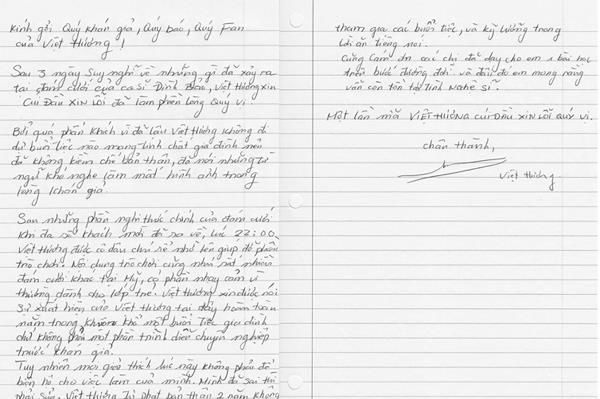 Kính gởi Quý khán giả, Quý báo, Quý Fan
của Việt Hương!
Sau 3 ngày Suy nghĩ về những gì đã xảy ra
tại đám cưới của ca sĩ Đinh Bảo, Việt Hương xin
CÚI ĐẦU XIN LỖI đã làm phiền lòng Quý vị.
Bởi quá phấn khích vì đã lâu Việt Hương không đi
dự buổi tiệc nào mang tính chất gia đình nên
đã không kiềm chế bản thân, đã nói những từ
ngữ khó nghe làm mất hình ảnh trong
lòng khán giả.
Sau những phần nghi thức chính của đám cưới
khi đa số khách mời đã ra về, lúc 22:00
Việt Hương được cô dâu chú rể nhờ lên giúp để phần
trò chơi. Nội dung trò chơi cũng như rất nhiều
đám cưới khác tại Mỹ, có phần nhạy cảm vì
thường dành cho lớp trẻ. Việt Hương xin được nói
sự xuất hiện của Việt Hương tại đây hoàn toàn
nằm trong khuôn khổ một buổi Tiệc gia đình
chứ không phải một phần trình diễn chuyên nghiệp
trước khán giả.
Tuy nhiên mọi giải thích lúc này không phải để
biện hộ cho việc làm của mình. Mình đã sai thì
phải sửa. Việt Hương Tự phạt bản thân 2 năm không
tham gia các buổi tiệc, và kỹ lưỡng trong
lời ăn tiếng nói.
Cũng cám ơn các chị đã dạy cho em 1 bài học
trên bước đường đời. và đâu đó em mong rằng
vẫn còn tồn tại Tình Nghệ sĩ.
Một lần nữa VIỆT HƯƠNG CÚI ĐẦU XIN LỖI QUÝ VỊ.
chân thành,
Việt Hương